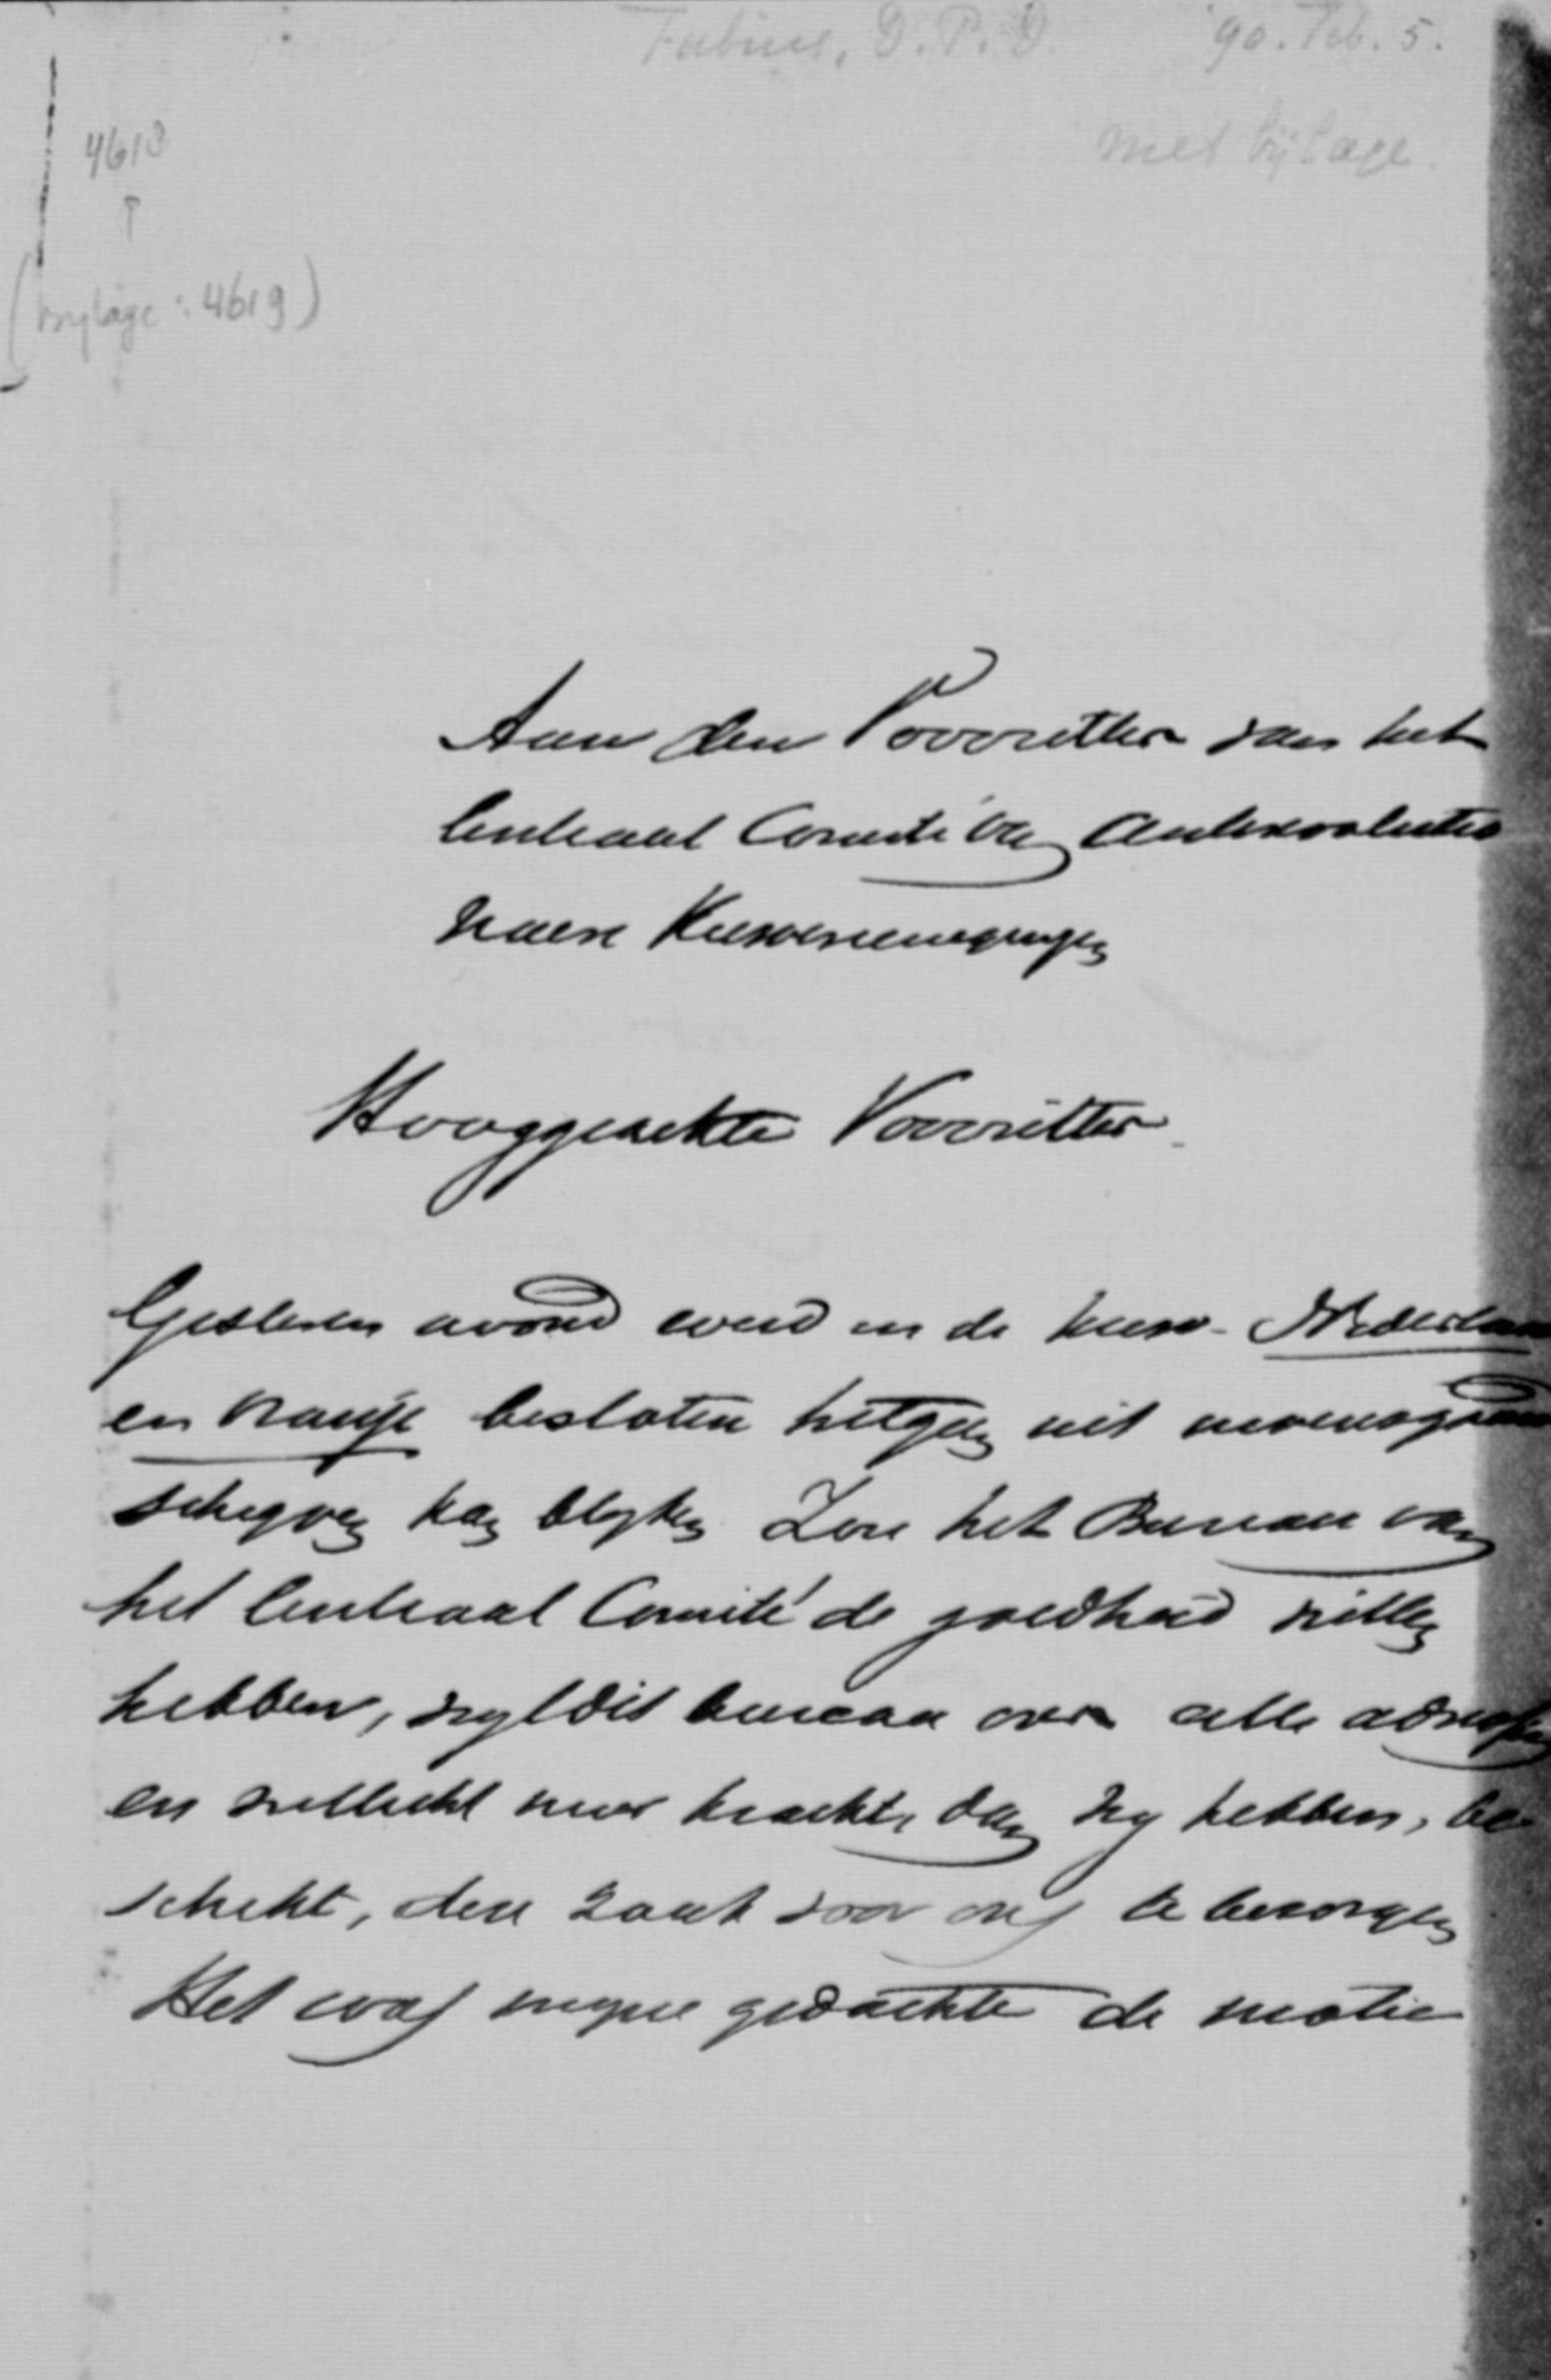 Fabius, D.P.D. '90. Feb. 5.
met bijlage.
4618
(bylage: 4619)
Aan den Voorzitter van het
Centraal Comité van Antirevolutio
naire Kiesvereenigingen
Hooggeachte Voorzitter.
Gisteren avond werd in de kiesv. Nederland
en Oranje besloten hetgeen uit nevensgaand
schryven kan blyken. Zou het Bureau van
het Centraal Comité de goedheid willen
hebben, wyl dit bureau over alle adressen
en wellicht meer krachten dan wy hebben, be-
schikt, deze zaak voor ons te bezorgen
Het was myne gedachte de motie